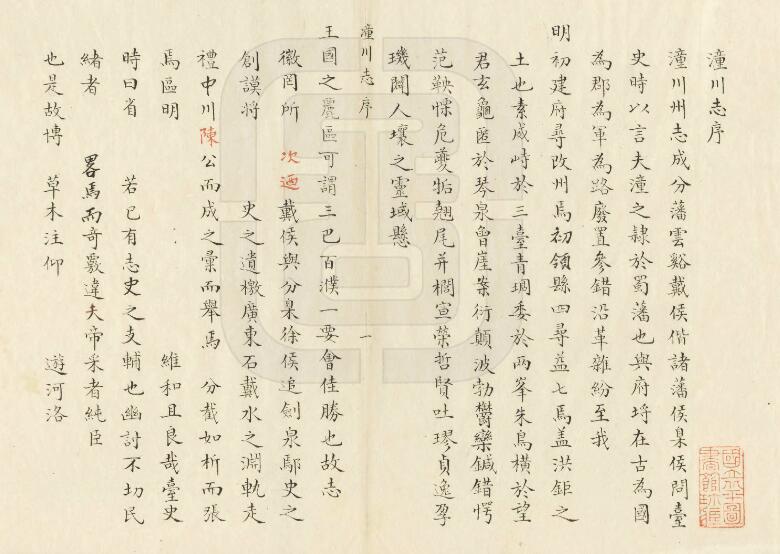 潼川志序
潼川州志成分藩雲谿戴侯偕諸藩侯臬侯問臺
史時以言夫潼之隷於蜀藩也與府埒在古為國
為郡為軍為路廢置參錯沿革雜紛至我
明初建府尋改州焉初領縣四尋益七焉盖洪鉅之
土也素威峙於三臺青琱委於兩峯朱鳥橫於望
君玄龜匿於琴泉魯崖案衍顛波勃鬱欒鍼錯愕
范鞅慄危夔垢翹尾并櫚宣榮哲賢吐璆貞逸孕
璣闢人壤之靈域懸
潼川志序 一
王國之麗區可謂三巴百濮一要會佳勝也故志
徽罔所 次迺戴侯與分臬徐侯追劍泉鄢史之
創謨將 史之遺檄廣東石戴水之淵軌走
禮中川陳公而成之彙而舉焉 分截如析而張
焉區明 維和且良哉臺史
時曰省 若已有志史之支輔也幽討不切民
緒者 畧焉而奇覈違夫帝采者純臣
也是故博 草木注仰 遊河洛